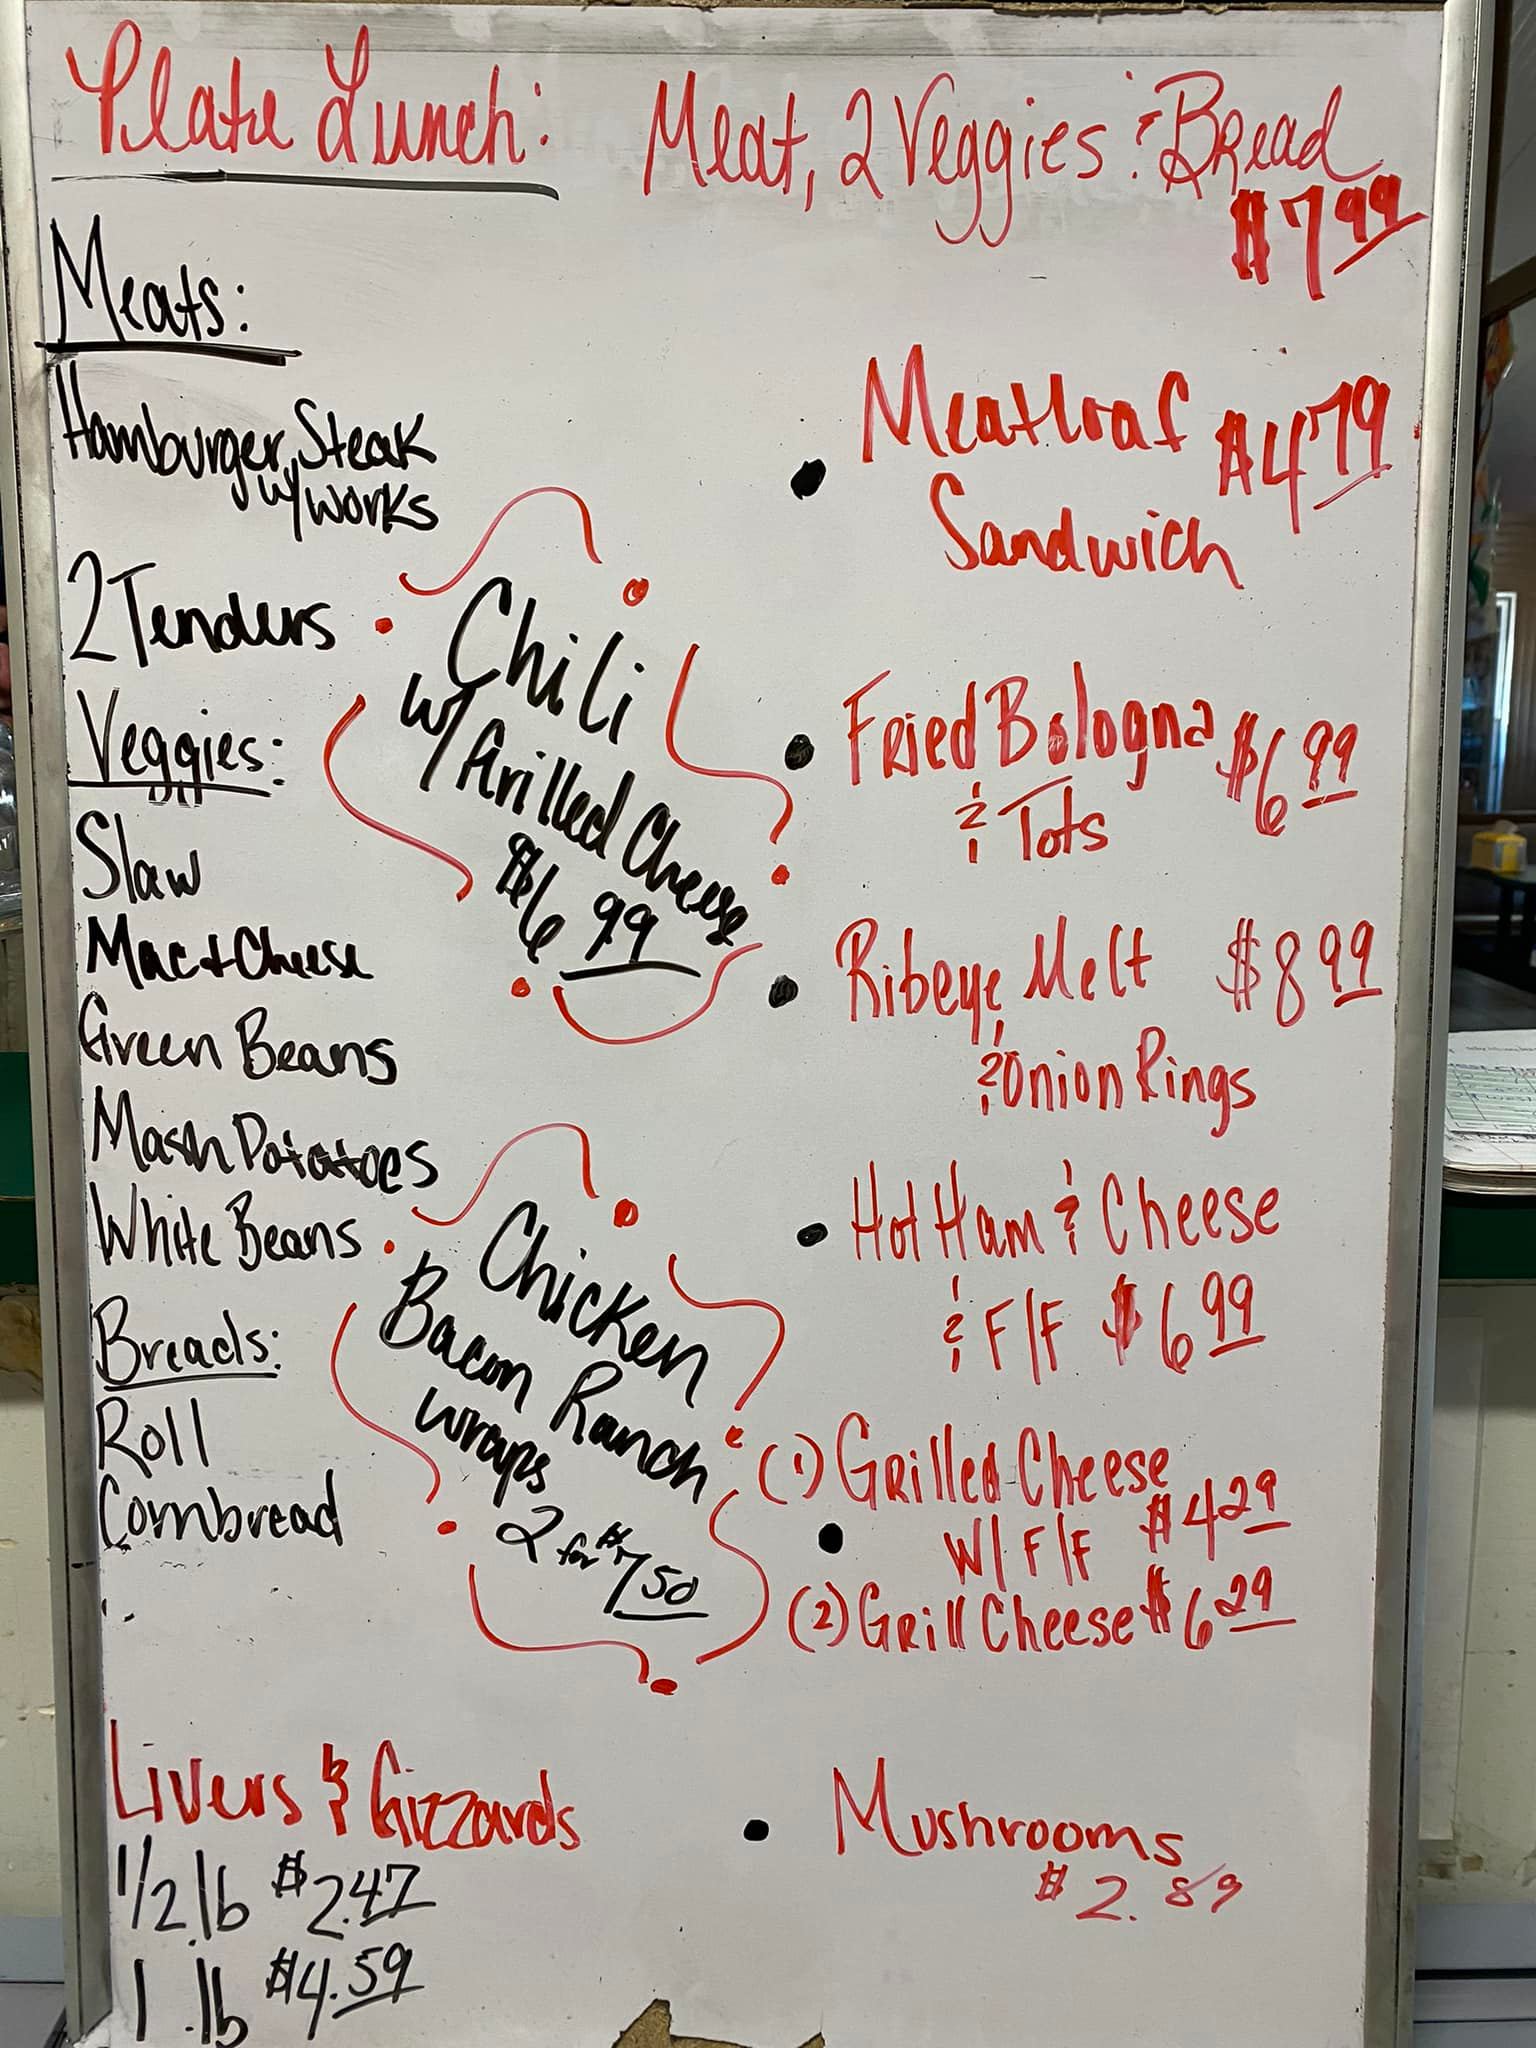 Plate Lunch: Meat, 2 Veggies & Bread
$7.99
Meats:
Hamburger Steak
w/ works
2 Tenders
Veggies:
Slaw
Mac + Cheese
Green Beans
Mash Potatoes
White Beans
Breads:
Roll
Cornbread
Chili
w/ Grilled Cheese
$6.99
Chicken
Bacon Ranch
Wraps
2 for $7.50
Meatloaf $4.79
Sandwich
Fried Bologna $6.99
& Tots
Ribeye Melt $8.99
& Onion Rings
Hot Ham & Cheese
& F/F $6.99
(1) Grilled Cheese
W/ F/F $4.29
(2) Grill Cheese $6.29
Livers & Gizzards
1/2 lb $2.47
1 lb $4.59
Mushrooms
$2.89